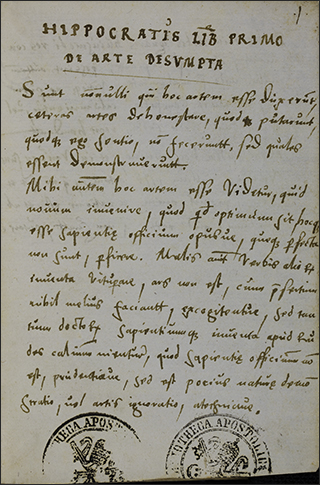 HIPPOCRATIS LIB PRIMO
DE ARTE DESVMPTA
Sunt nonnulli qui hoc artem esse duxerut,
ceteras artes dehonestare, quod putarunt,
quodque ego sentio, no fecerunt. sed quales
essent demonstrauerutt.
Mihi autem hoc artem esse videtur, quid
nouum inuenire, quod optimum sit hoc
esse sapientie officium opusue, queque
non sunt, perficere. Malis aut verbis
inuenta vituperare, ars non est, cum
nihil melius faciant, excogitentue, sed tan
tum doctor sapientiumque inuenta apud
des calumnientur, quod sapientie officium no
est, prudentiaue, sed est pocius nature demo
stratio, uel artis ignoratio,
THECA APOST
OTHECA APOSTOLI